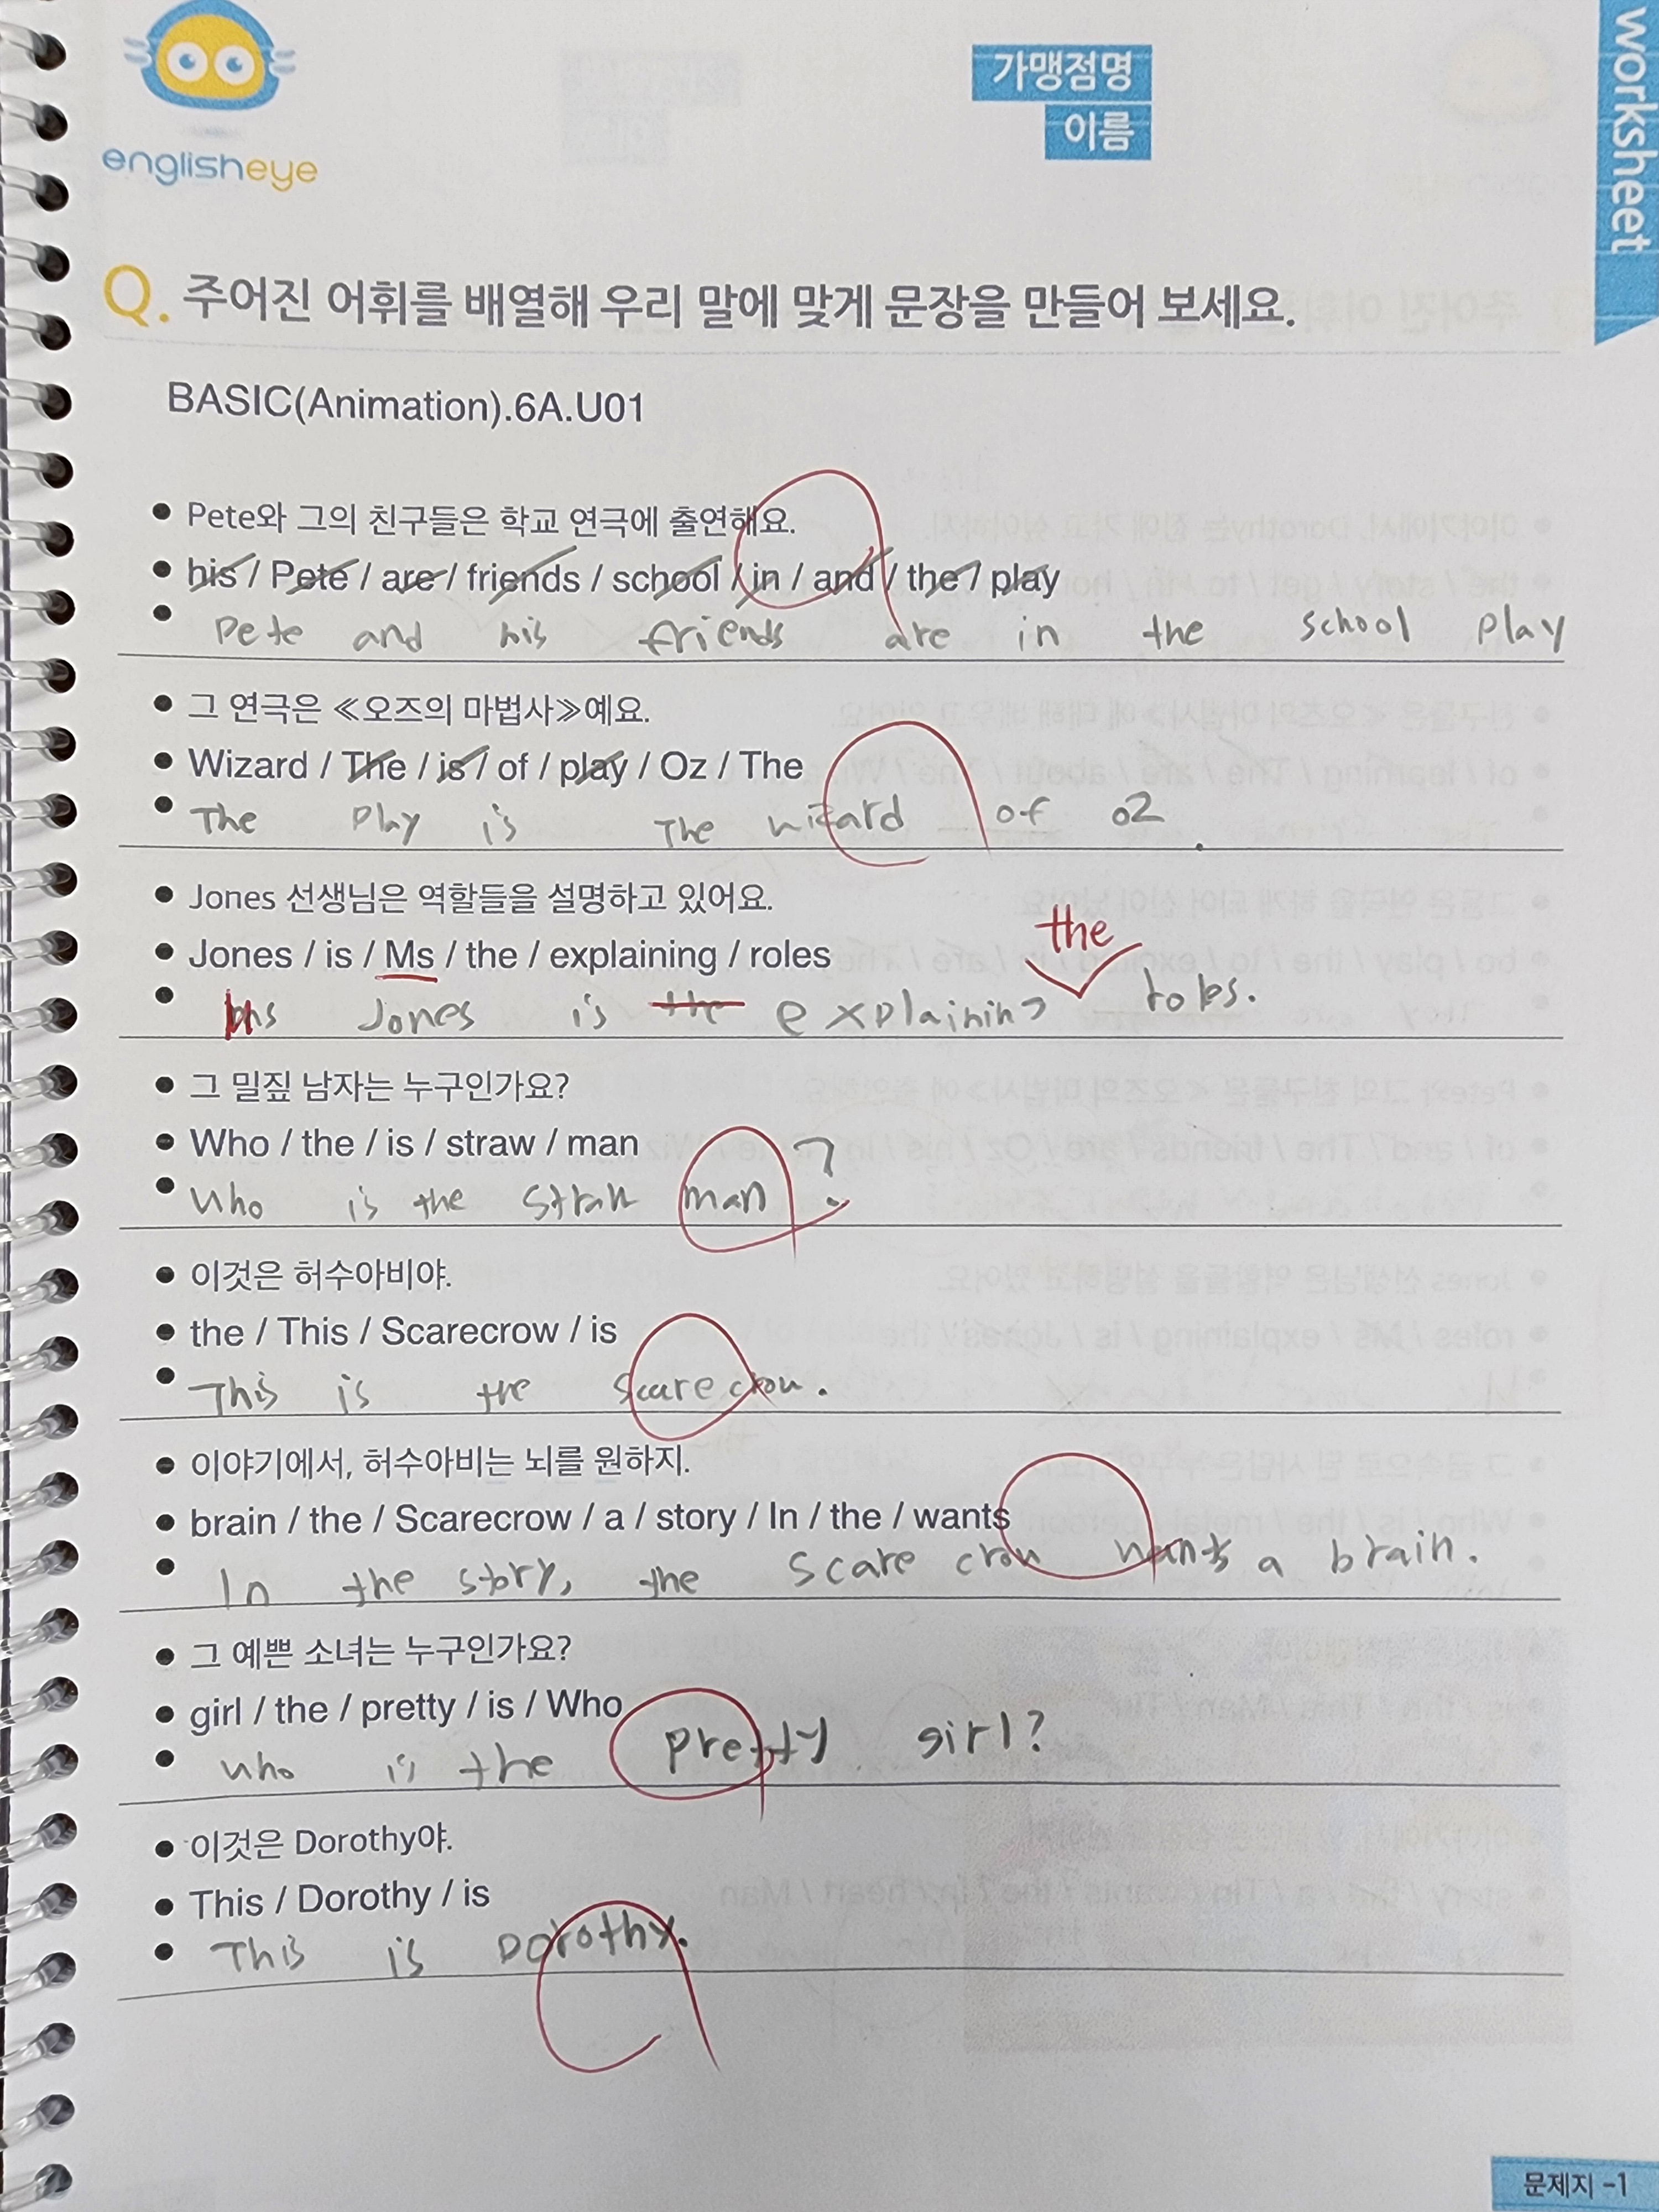 englisheye
가맹점명
이름
worksheet
Q. 주어진 어휘를 배열해 우리 말에 맞게 문장을 만들어 보세요.
BASIC(Animation).6A.U01
• Pete와 그의 친구들은 학교 연극에 출연해요.
• his / Pete / are / friends / school / in / and / the / play
• Pete and his friends are in the school play
• 그 연극은 ≪오즈의 마법사≫예요.
• Wizard / The / is / of / play / Oz / The
• The play is The wizard of oz.
• Jones 선생님은 역할들을 설명하고 있어요.
the
• Jones / is / Ms / the / explaining / roles
• Ms Jones is the explaining roles.
• 그 밀짚 남자는 누구인가요?
• Who / the / is / straw / man
• who is the straw man?
• 이것은 허수아비야.
• the / This / Scarecrow / is
• This is the scare crow.
• 이야기에서, 허수아비는 뇌를 원하지.
• brain / the / Scarecrow / a / story / In / the / wants
• In the story, the scare crow wants a brain.
• 그 예쁜 소녀는 누구인가요?
• girl / the / pretty / is / Who
• who is the pretty girl?
• 이것은 Dorothy야.
• This / Dorothy / is
• This is Dorothy.
문제지 -1